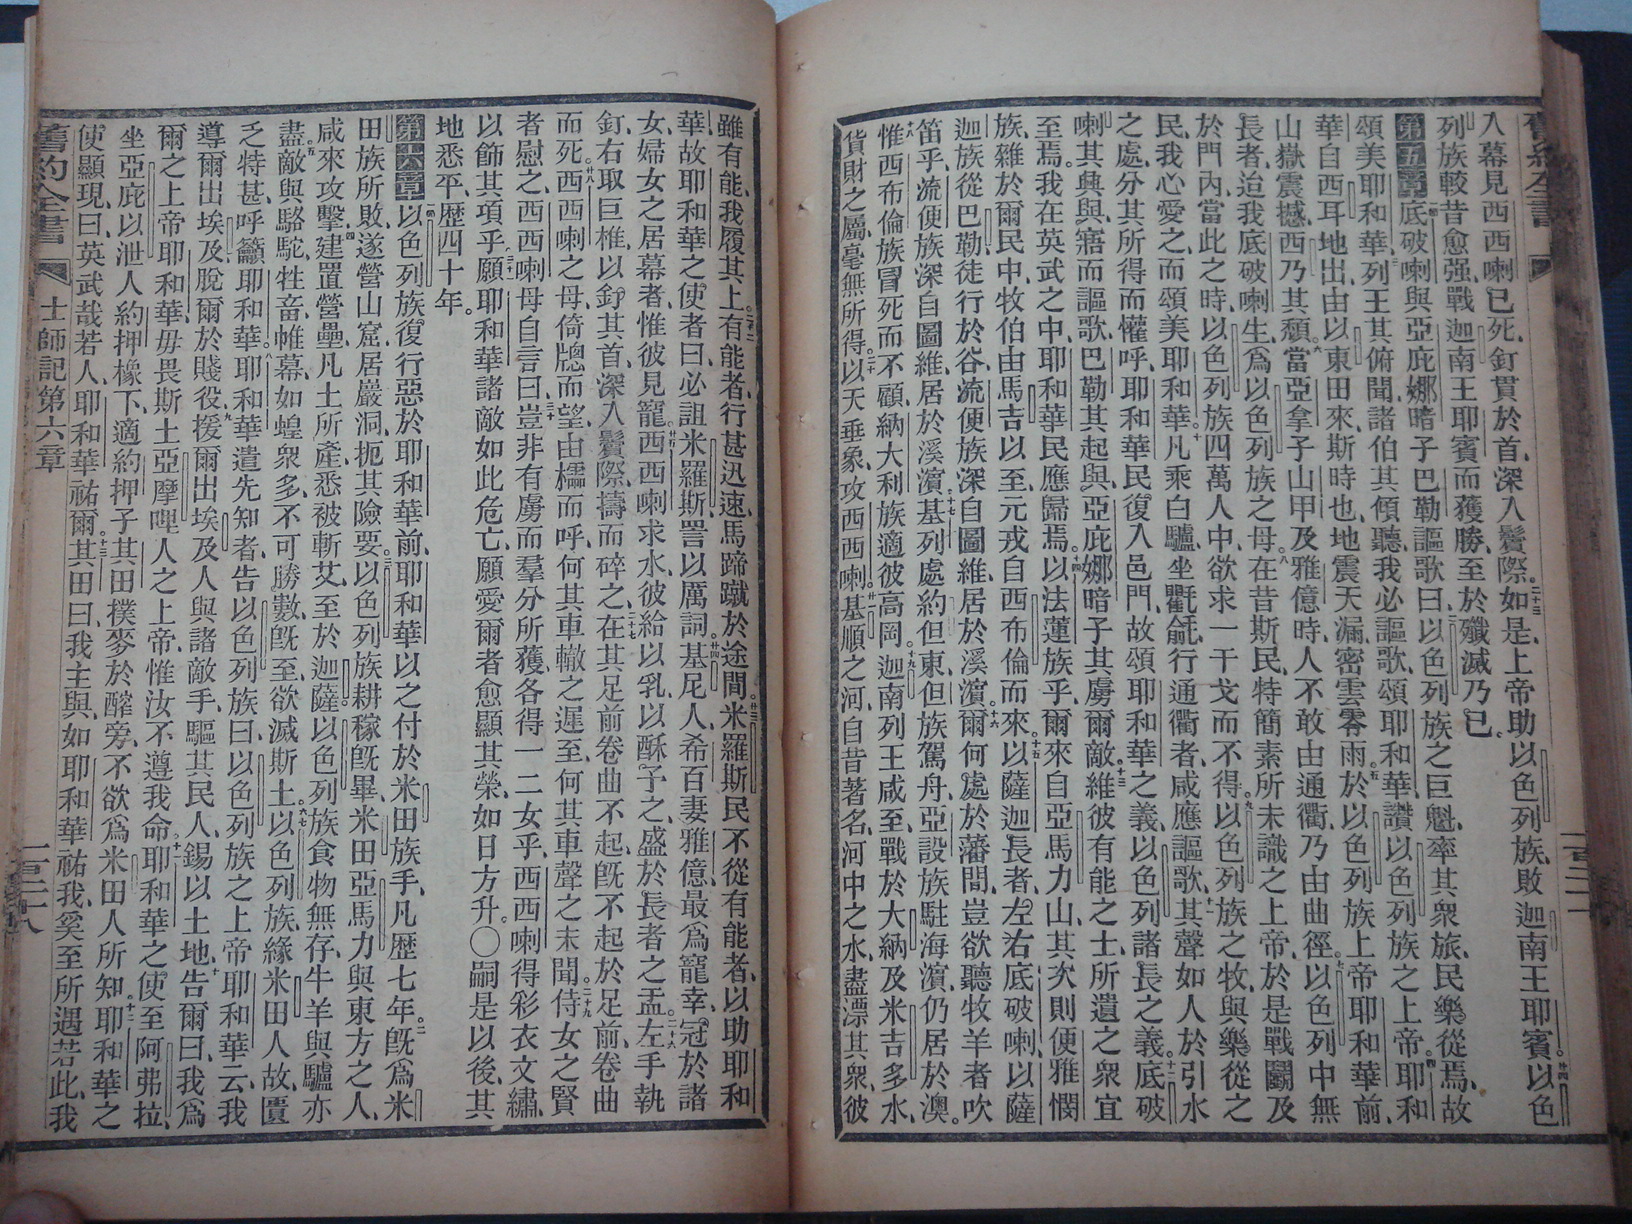 入幕見西西喇已死釘貫於首深入鬢際如是上帝助以色列族敗迦南王耶賓以色
列族較昔愈强戰迦南王耶賓而獲勝至於殲滅乃已
第五章底破喇與亞庇娜暗子巴勒謳歌曰以色列族之巨魁率其衆旅民樂從焉故
頌美耶和華列王其俯聞諸伯其傾聽我必謳歌頌耶和華讚以色列族之上帝耶和
華自西耳地出由以東田來斯時也地震天漏密雲零雨於以色列族上帝耶和華前
山嶽震撼西乃其頹當亞拿子山甲及雅億時人不敢由通衢乃由曲徑以色列中無
長者迨我底破喇生爲以色列族之母在昔斯民特簡素所未識之上帝於是戰鬭及
於門內當此之時以色列族四萬人中欲求一干戈而不得以色列族之牧與樂從之
民我心愛之而頌美耶和華凡乘白驢坐氍毹行通衢者咸應謳歌其聲如人於引水
之處分其所得而懽呼耶和華民復入邑門故頌耶和華之義以色列諸長之義底破
喇其興與寤而謳歌巴勒其起與亞庇娜暗子其虜爾敵維彼有能之士所遺之衆宜
至焉我在英武之中耶和華民應歸焉以法蓮族乎爾來自亞馬力山其次則便雅憫
族雜於爾民中牧伯由馬吉以至元戎自西布倫而來以薩迦長者左右底破喇以薩
迦族從巴勒徒行於谷流便族深自圖維居於溪濵爾何處於藩間豈欲聽牧羊者吹
笛乎流便族深自圖維居於溪濵基列處約但東但族駕舟亞設族駐海濵仍居於澳
惟西布倫族冒死而不顧納大利族適彼高岡迦南列王咸至戰於大納及米吉多水
貨財之屬毫無所得以天垂象攻西西喇基順之河自昔著名河中之水盡漂其衆彼
雖有能我履其上有能者行甚迅速馬蹄蹴於途間米羅斯民不從有能者以助耶和
華故耶和華之使者曰必詛米羅斯詈以厲詞基尼人希百妻雅億最爲寵幸冠於諸
女婦女之居幕者惟彼見寵西西喇求水彼給以乳以酥予之盛於長者之盂左手執
釘右取巨椎以釘其首深入鬢際擣而碎之在其足前卷曲不起旣不起於足前卷曲
而死西西喇之母倚牕而望由櫺而呼何其車轍之遲至何其車聲之未聞侍女之賢
者慰之西西喇母自言曰豈非有虜而羣分所獲各得一二女乎西西喇得彩衣文繡
以飾其項乎願耶和華諸敵如此危亡願愛爾者愈顯其榮如日方升〇嗣是以後其
地悉平歴四十年
第六章以色列族復行惡於耶和華前耶和華以之付於米田族手凡歴七年旣爲米
田族所敗遂營山窟居巖洞扼其險要以色列族耕稼旣畢米田亞馬力與東方之人
咸來攻擊建置營壘凡土所產悉被斬艾至於迦薩以色列族食物無存牛羊與驢亦
盡敵與駱駝牲畜帷幕如蝗衆多不可勝數旣至欲滅斯土以色列族緣米田人故匱
乏特甚呼籲耶和華耶和華遣先知者告以色列族曰以色列族之上帝耶和華云我
導爾出埃及脫爾於賤役援爾出埃及人與諸敵手驅其民人錫以土地告爾曰我爲
爾之上帝耶和華毋畏斯土亞摩哩人之上帝惟汝不遵我命耶和華之使至阿弗拉
坐亞庇以泄人約押橡下適約押子其田樸麥於醡旁不欲爲米田人所知耶和華之
使顯現曰英武哉若人耶和華祐爾其田曰我主與如耶和華祐我奚至所遇若此我
舊約全書 士師記第六章 一百二十八